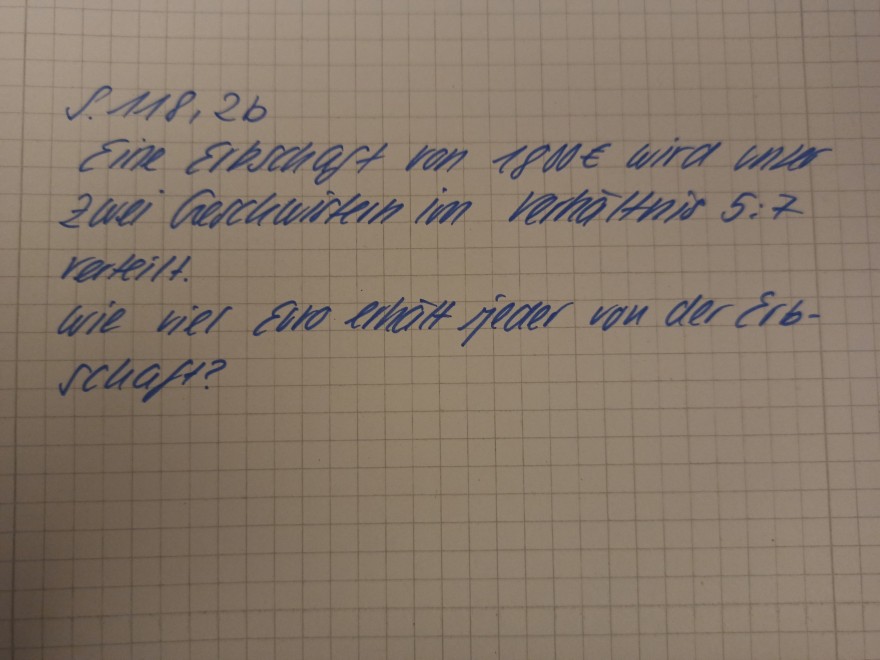 S. 118, 2b
Eine Erbschaft von 1800€ wird unter
zwei Geschwistern im Verhältnis 5:7
verteilt.
Wie viel Euro erhält jeder von der Erb-
schaft?